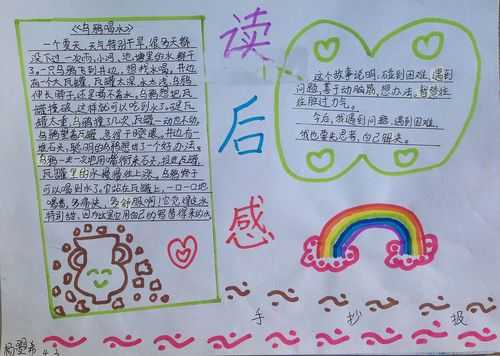 《乌鸦喝水》
一个夏天,天气特别干旱,很多天都
没下过一次雨,小河、池塘里的水都干
了。一只乌鸦飞到井边,想找水喝,井边
有一个大瓦罐,瓦罐太深,水太浅,乌鸦
伸长脖子,还是喝不着水。乌鸦想把瓦
罐撞破,这样就可以吃到水了。可是瓦
罐太重,乌鸦撞了几次,瓦罐一动也不动,
乌鸦望着瓦罐,
一堆石头,聪明的乌鸦想出了一个好办法。
乌鸦一次一次地用嘴衔来石头,投进瓦罐,
瓦罐里的水慢慢往上涨,乌鸦终于
可以喝到水了。它站在瓦罐上,一口一口地
喝着,多痛快,多舒服啊!它觉得这水
特别甜,因为这是它用自己的智慧得来的水
读
后
感
这个故事说明,碰到困难,遇到
问题,善于动脑筋,想办法,智慧往
往胜过力气。
今后,我遇到问题,遇到困难,
我也要先思考,自己解决。
手 抄 报
4.3